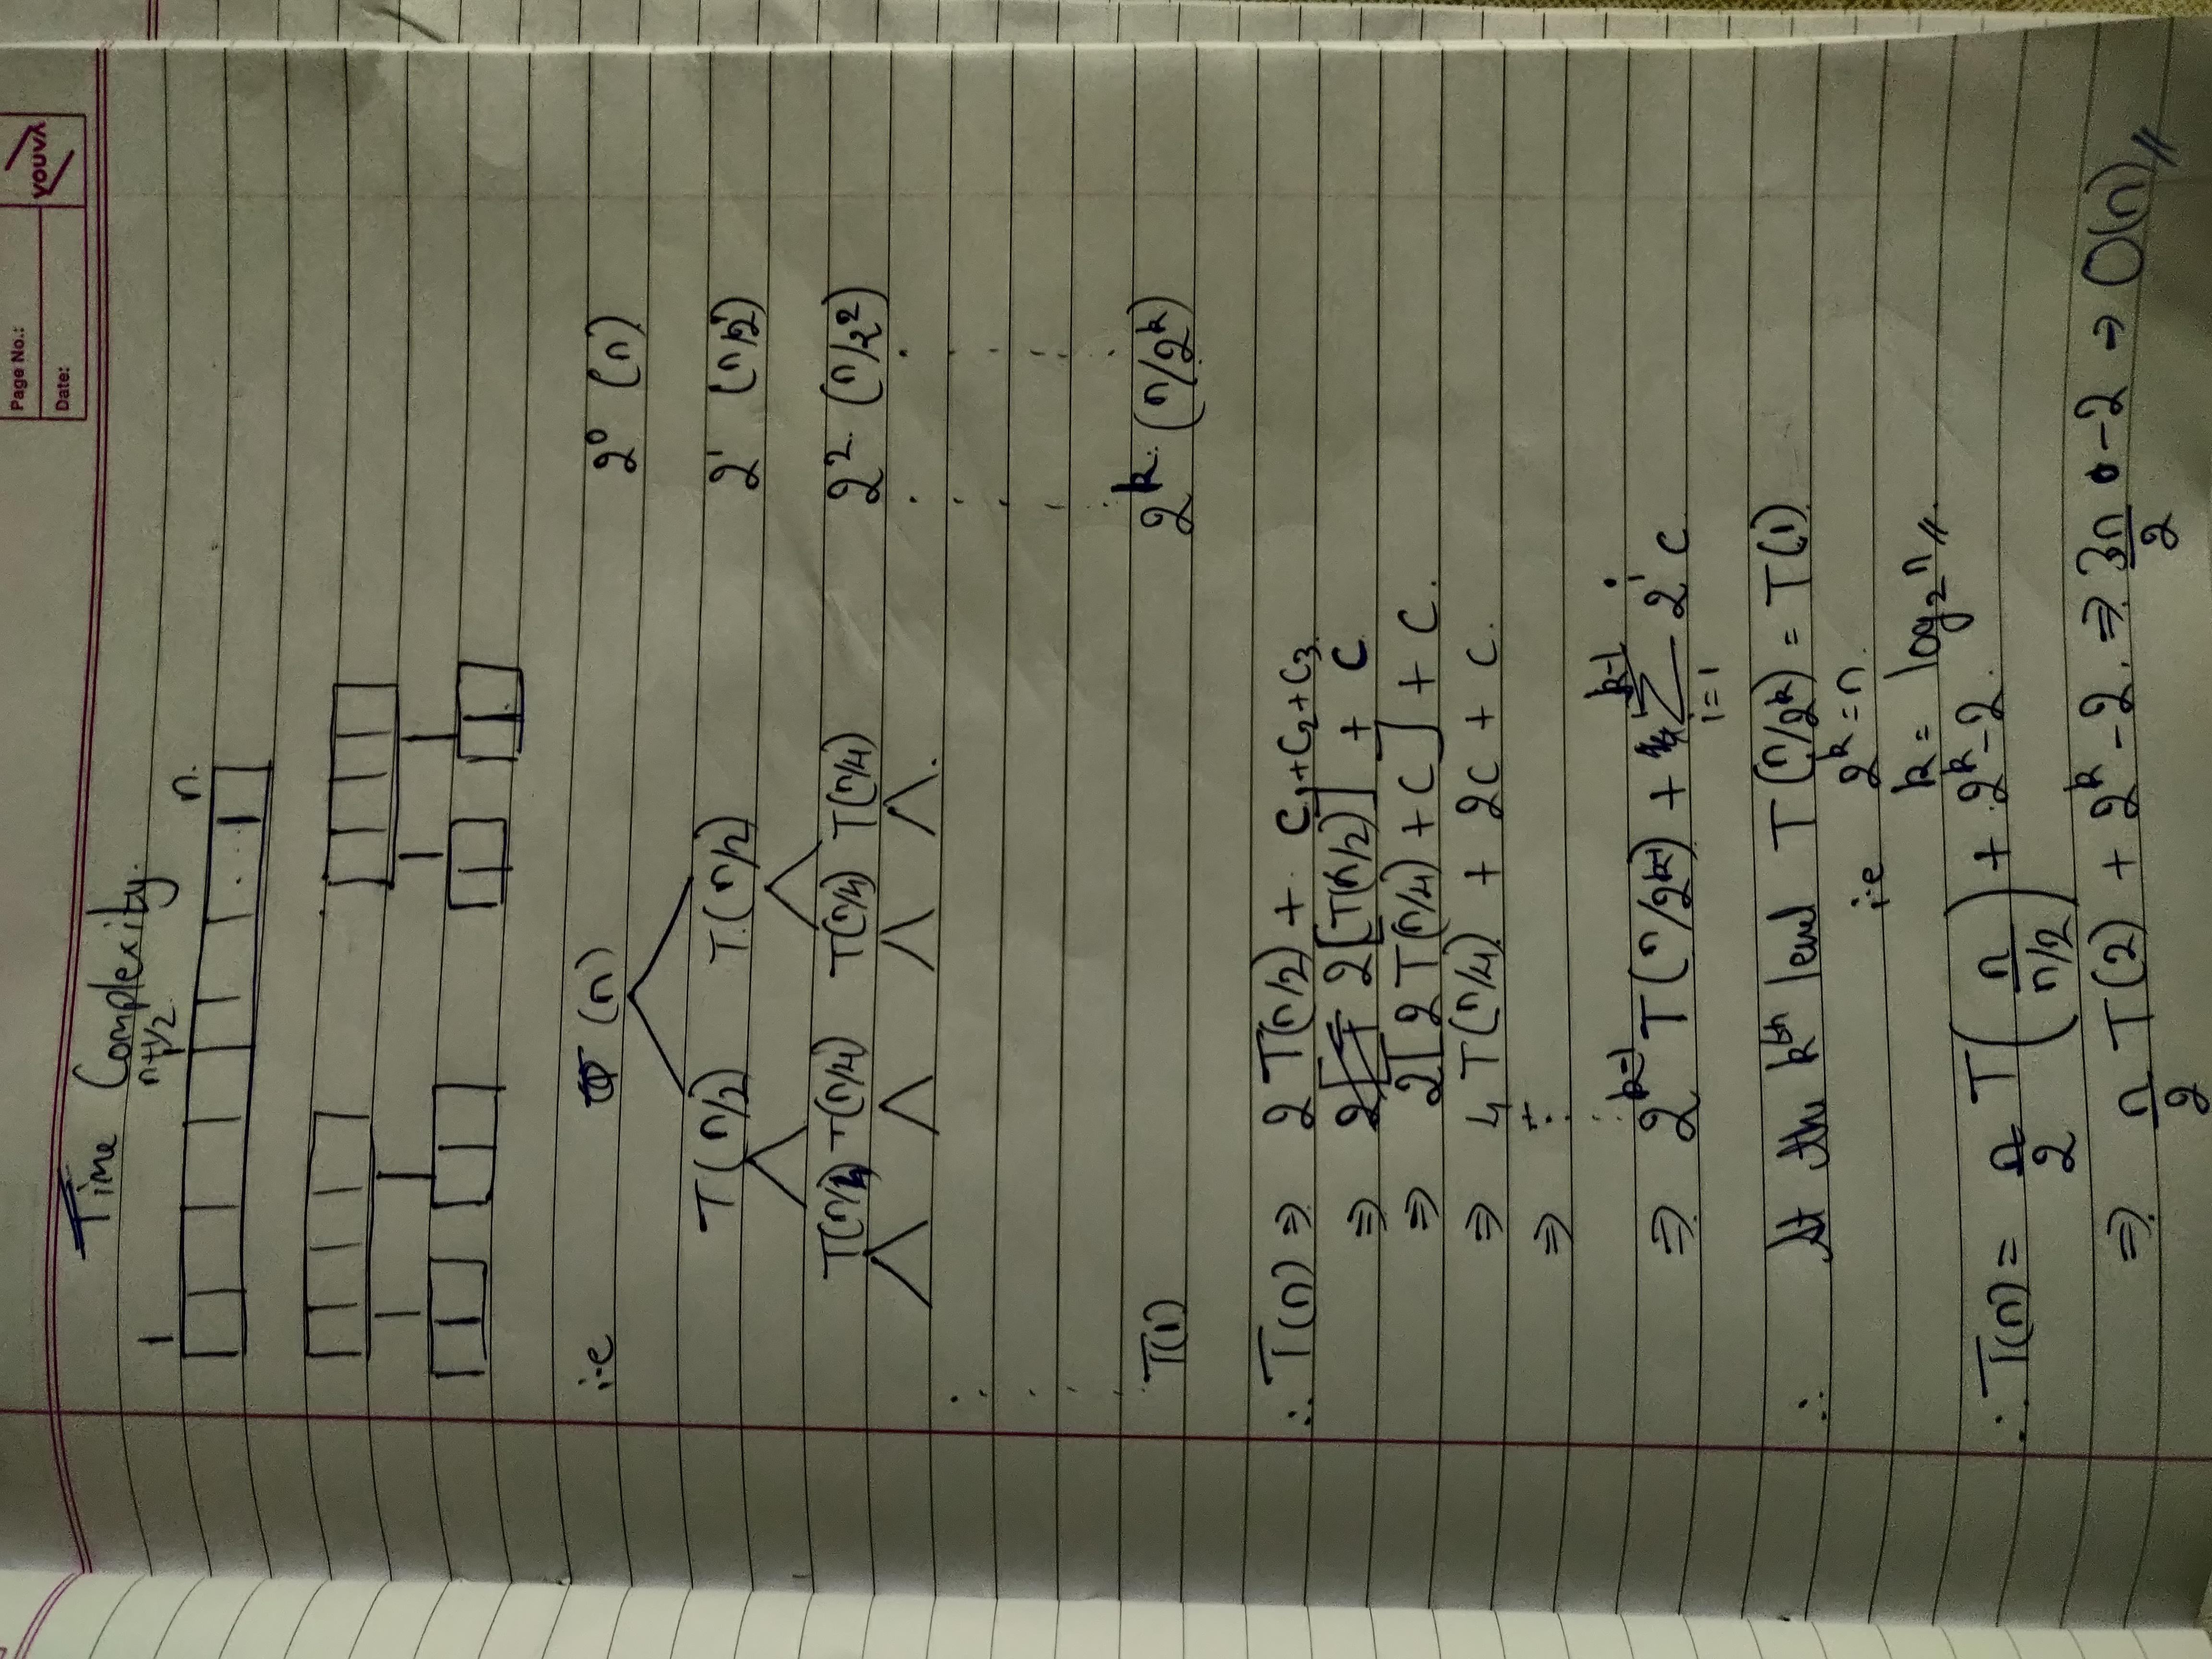 Page No.:
Date:
YOUVA
Time Complexity.
1 n+1/2 n.
i.e (n) 2⁰ (n)
T(n/2) T(n/2) 2¹ (n/2)
T(n/4) T(n/4) T(n/4) T(n/4) 2² (n/2²)
T(1) 2ᵏ (n/2ᵏ)
∴ T(n) ⇒ 2 T(n/2) + C₁+C₂+C₃
⇒ 2[T(n/2)] + C
⇒ 2[2T(n/4) + C] + C.
⇒ 4 T(n/4) + 2C + C.
⇒ ⋮
⇒ 2ᵏ⁻¹ T(n/2ᵏ⁻¹) + ∑ᵢ₌₁ᵏ⁻¹ 2ⁱ c
∴ At the kᵗʰ level T(n/2ᵏ) = T(1)
i.e 2ᵏ = n.
k = log₂ n //.
∴ T(n) = n/2 T(n/(n/2)) + 2ᵏ - 2.
⇒ n/2 T(2) + 2ᵏ - 2. ⇒ 3n/2 - 2 → O(n) //